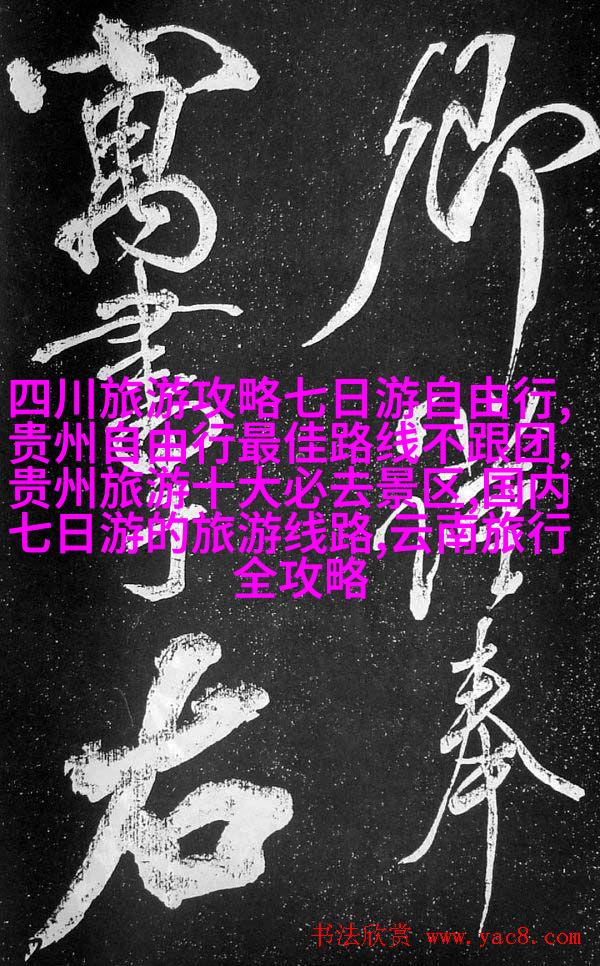 卿謹奉
寓書于右
四川旅游攻略七日游自由行,
贵州自由行最佳路线不跟团,
贵州旅游十大必去景区,国内
七日游的旅游线路,云南旅行
全攻略
书法欣赏 www.yac8.com